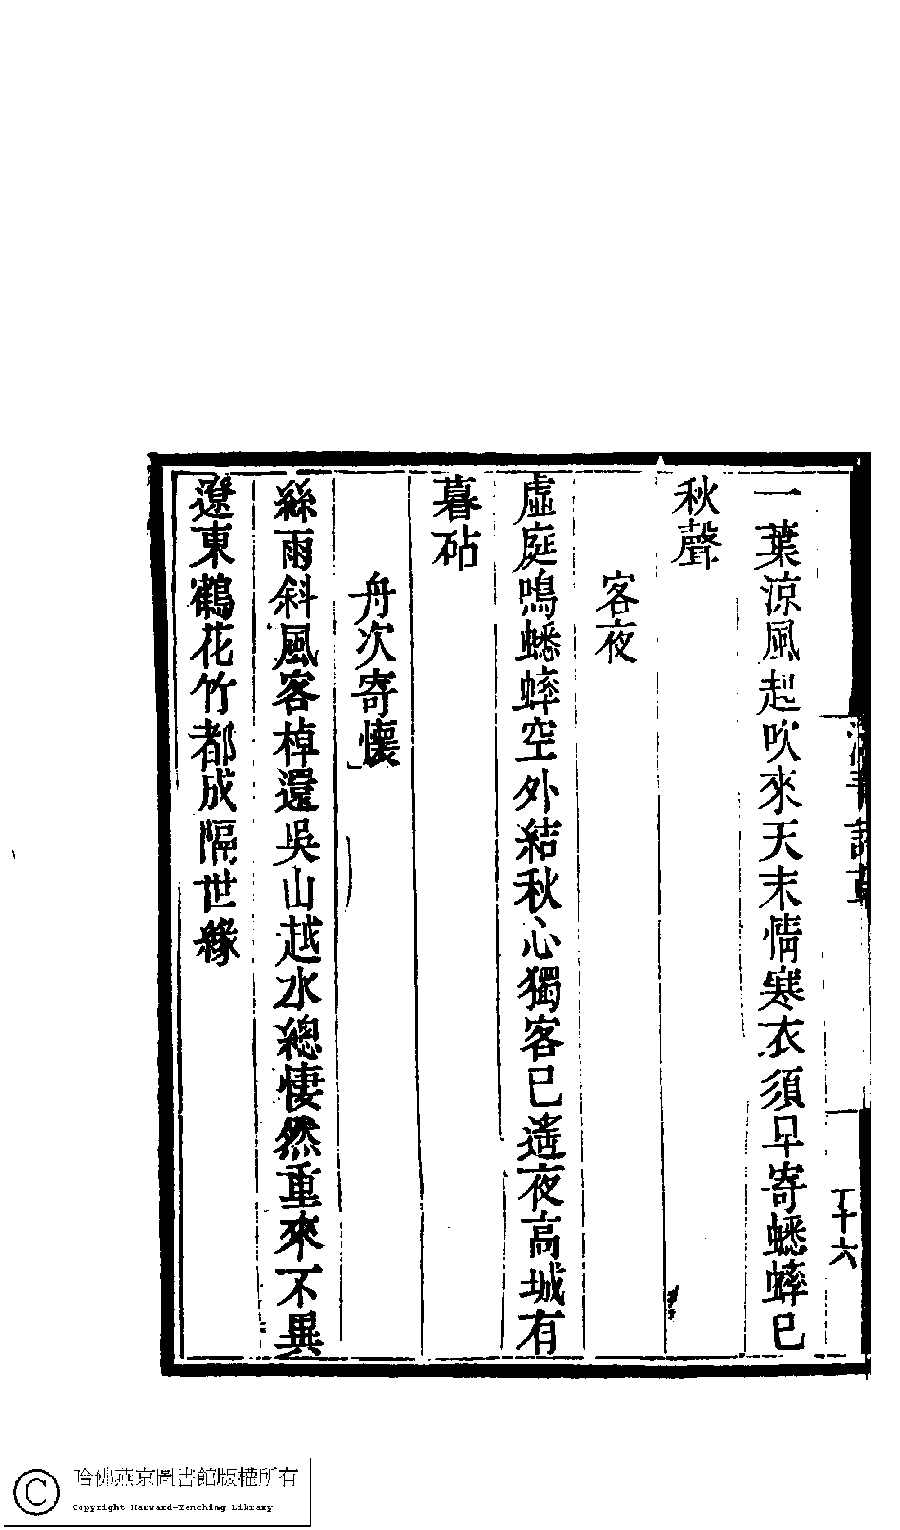 一葉涼風起吹來天末情寒衣須早寄蟋蟀已
秋聲
客夜
虛庭鳴蟋蟀空外結秋心獨客已遙夜高城有
暮砧
舟次寄懷
絲雨斜風客棹還吳山越水總悽然重來不異
遼東鶴花竹都成隔世緣
十六
哈佛燕京圖書館版權所有
Copyright Harvard-Yenching Library